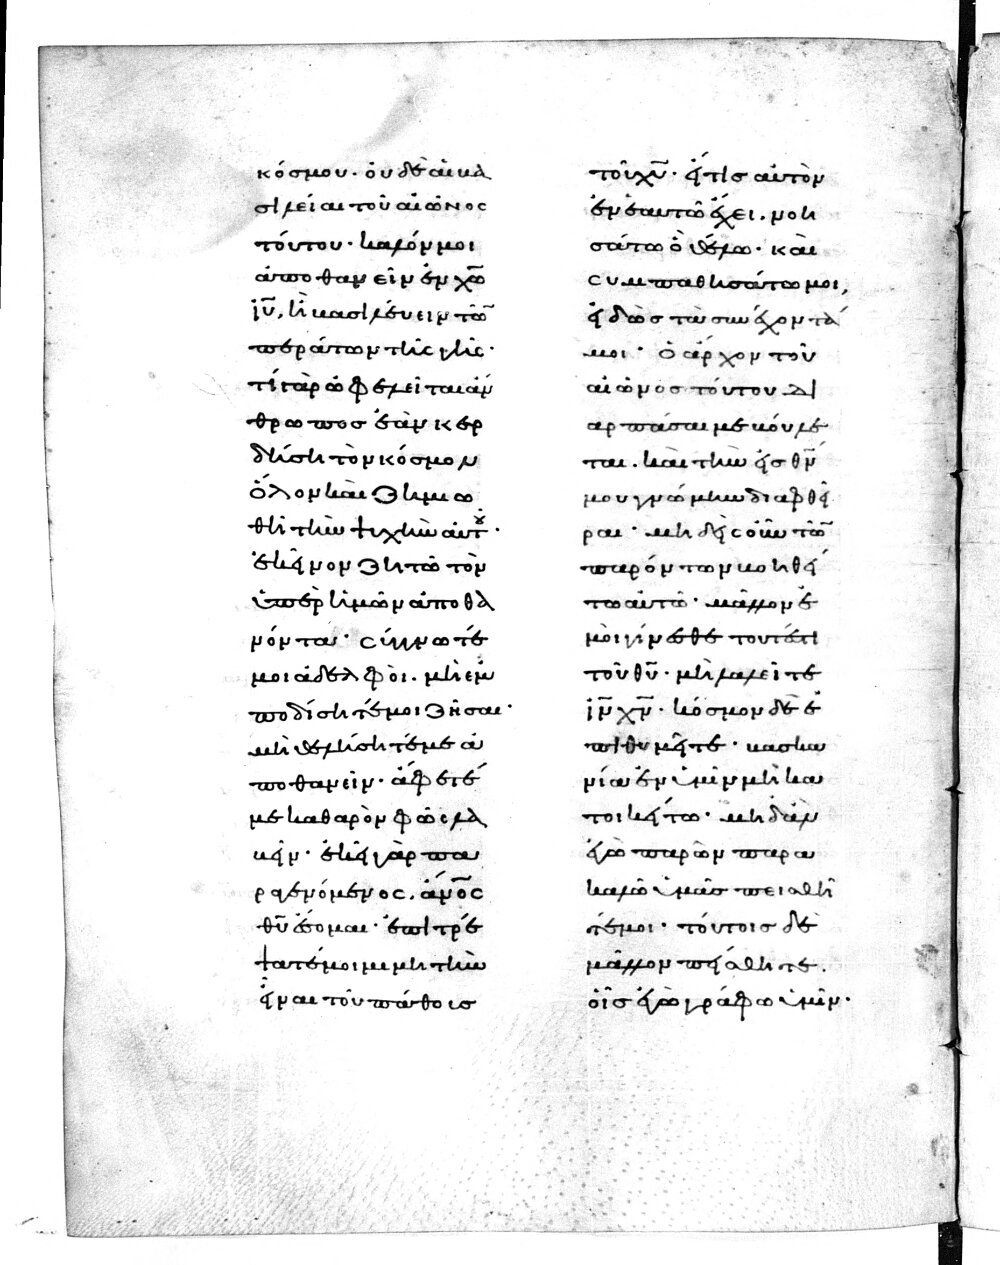 κόσμου· ὀυδὲ ἁι βα
σιλεῖαι τοῦ αἰῶνος
τόυτου· καλόν μοι
ἀποθανεῖν ἐν χῶ
ἰῦ, ἢ βασιλέυειν τῶ
περάτων τῆς γῆς·
τί γὰρ ὠφελεῖται ἄν
θρωπος ἐὰν κερ
δήση τὸν κόσμον
ὅλον καὶ ζημιω
θῆ τὴν ψυχὴν αὐτ·
ἐκεῖνον ζητῶ τὸν
ὑπὲρ ἡμῶν ἀποθα
νόντα· σύγγνωτέ
μοι ἀδελφοὶ. μὴ ἐμ
ποδίσητέ μοι ζῆσαι·
μὴ θελήσητέ με ἀ
ποθανεῖν· ἄφετέ
με καθαρὸν φῶς λα
βεῖν· ἐκεῖ γὰρ πα
ραγενόμενος, ἄνος
θῦ ἔσομαι· ἐπιτρέ
ψατέ μοι μιμητὴν
εἶναι τοῦ πάθους
τοῦ χῦ· εἴ τις αὐτὸν
ἐν ἑαυτῶ ἔχει. νοη
σάτω ὃ θέλω· καὶ
συμπαθησάτω μοι,
εἰδὼς τὰ συνέχοντά
μοι· ὁ ἄρχον τοῦ
αἰῶνος τόυτου δι
αρπάσαι με βόυλε
ται. καὶ τὴν εἰς θν
μου γνώμην διαφθεῖ
ραι· μηδεὶς οὖν τῶ
παρόντων βοηθεί
τω αὐτῶ· μᾶλλον ἐ
μοὶ γίνεσθε τουτέστι
τοῦ θῦ· μὴ λαλεῖτε
ἰν χν· κόσμον δὲ ἐ
πιθυμεῖτε· βασκα
νία ἐν ὑμῖν μὴ κα
τοικείτω· μηδ ἂν
ἐγὼ παρὼν παρα
καλῶ ὑμᾶς πεισθῆ
τέ μοι· τόυτοις δὲ
μᾶλλον πείσθητε.
οἷς ἐγὼ γράφω ὑμῖν·